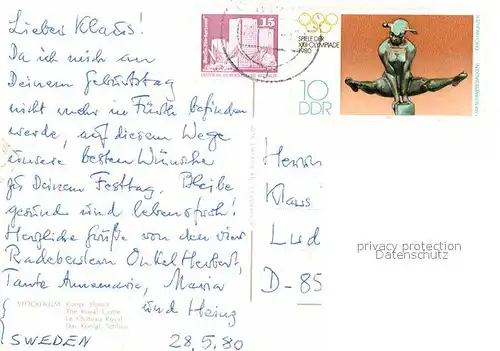 Lieber Klaus!
Da ich mich an
Deinem Geburtstag
nicht mehr in Fürth befinden
werde, auf diesem Wege
unsere besten Wünsche
zu Deinem Festtag. Bleibe
gesund und lebensfroh!
Herzliche Grüße von den vier
Radebeulern Onkel Herbert,
Tante Annemarie, Maria
und Heinz
STOCKHOLM
The Royal Castle
Le Château Royal
Das Königl. Schloss
SWEDEN 28.5.80
15
SPIELE DER
XXII. OLYMPIADE
1980
10
DDR
Herrn
Klaus
Lud
D-85
privacy protection
Datenschutz